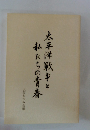 太平洋戦争と
私たちの青春